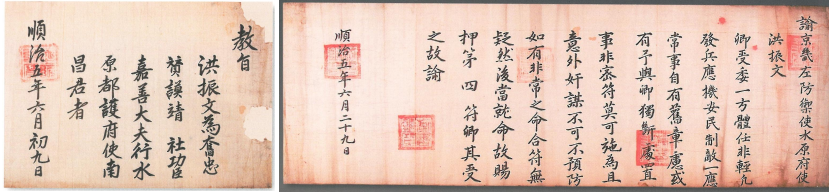 教旨
洪振文為奮忠
贊謨靖 社功臣
嘉善大夫行水
原都護府使南
昌君者
順治五年六月初九日
諭京畿左防禦使水原府使
洪振文
卿受委一方體任非輕凡
發兵應機安民制敵一應
常事自有舊章慮或
有予與卿獨斷處置
事非密符莫可施為且
意外奸謀不可不預防
如有非常之命合符無
疑然後當就命故賜
押第四符卿其受
之故諭
順治五年六月二十九日